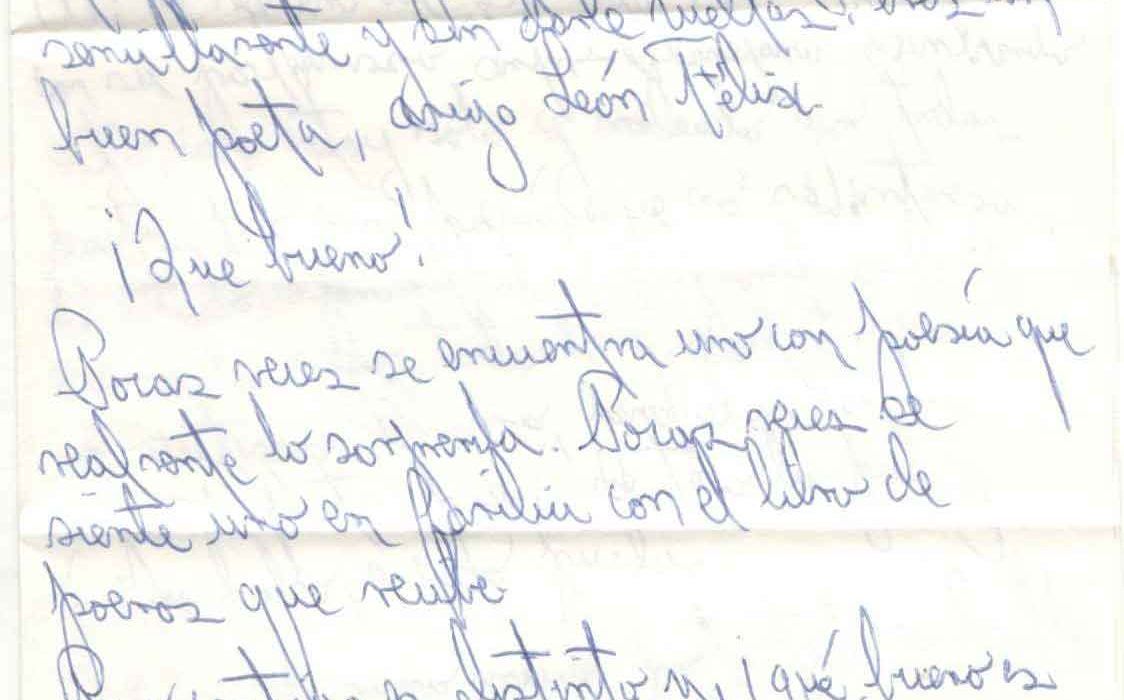 sencillamente y sin darle vueltas: eres un
buen poeta, amigo León Félix
¡Que bueno!
Pocas veces se encuentra uno con poesía que
realmente lo sorprenda. Pocas veces se
siente uno en familia con el libro de
poemas que recibe.
distinto y, ¡qué bueno es